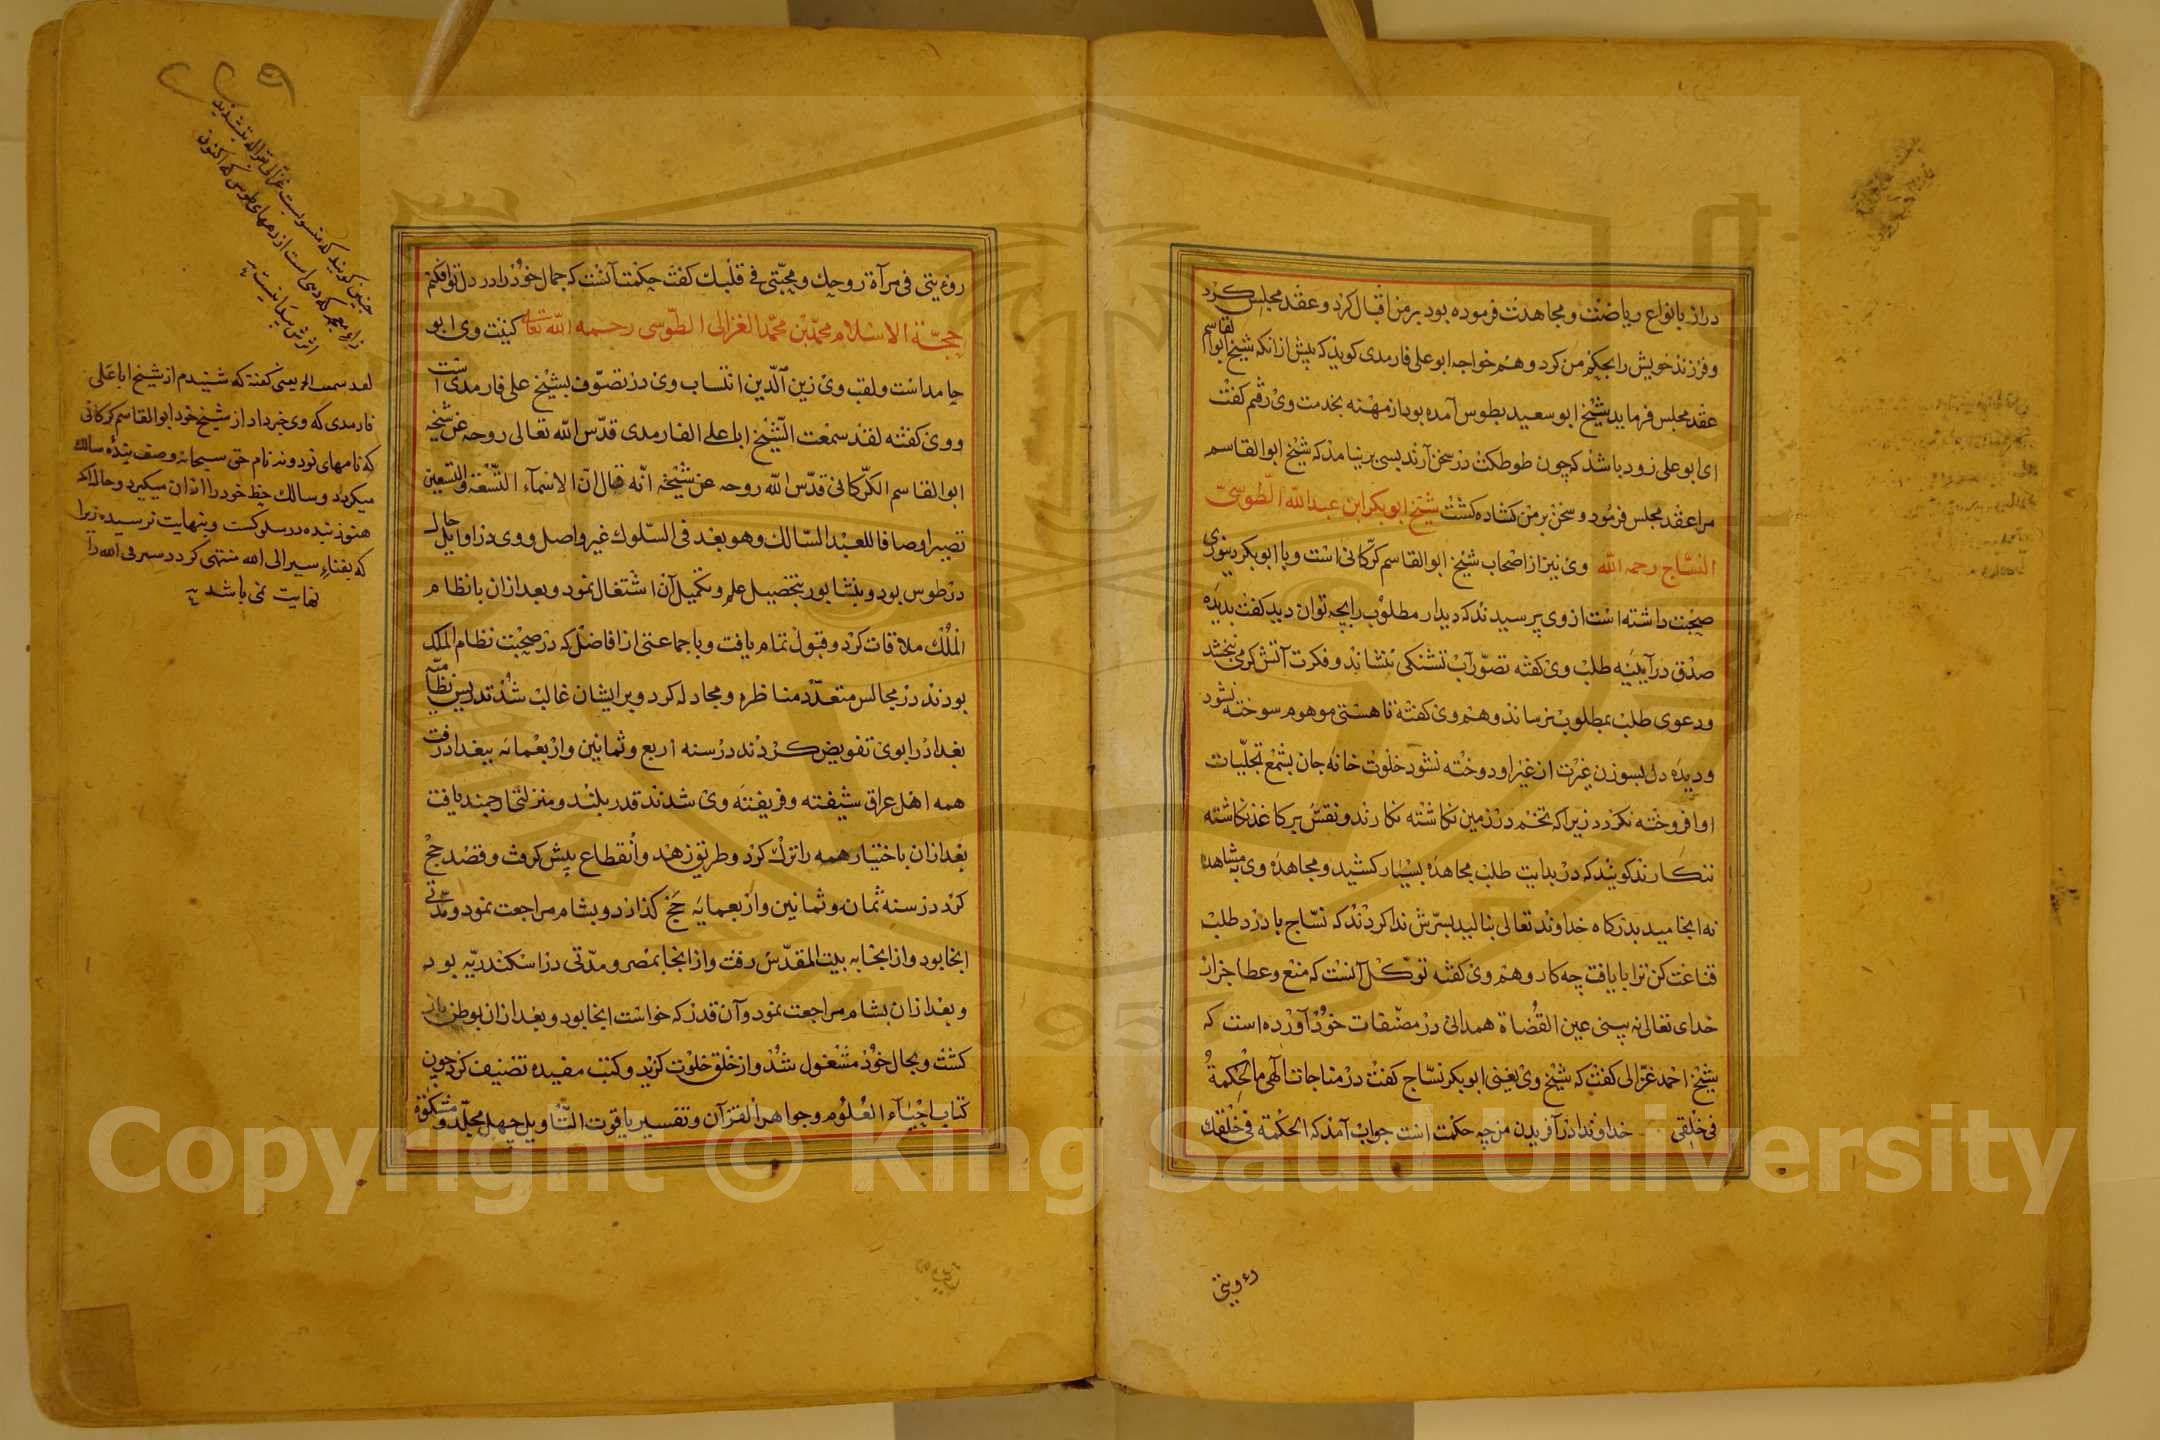 دراز بانواع ریاضت و مجاهدت فرموده بود بر من اقبال کرد و عقد مجلس کرد
و فرزند خویش را بحکم من کرد و هم خواجه ابو علی فارمدی کوید که پیش از انکه شیخ ابوالقاسم
عقد مجلس فرماید شیخ ابو سعید بطوس آمده بود از مهنه بخدمت وی رفتم کفت
ای ابو علی زود باشد که چون طوطکت در سخن آرند بسی برنیامد که شیخ ابوالقاسم
مرا عقد مجلس فرمود و سخن بر من کشاده کشت شیخ ابوبکر ابن عبدالله الطوسی
النساج رحمه الله وی نیز از اصحاب شیخ ابوالقاسم کرکانی است و با ابوبکر دینوری
صحبت داشته است از وی پرسیدند که دیدار مطلوب را بچه توان دید کفت بدیده
صدق در آیینه طلب وی کفته تصور آب تشنکی ننشاند و فکرت آتش کرمی نبخشد
و دعوی طلب بمطلوب نرساند و هم وی کفته تا هستی موهوم سوخته نشود
و دیده دل بسوزن غیرت از غیر او دوخته نشود خلوت خانه جان بشمع تجلیات
او افروخته نکردد زیرا که تخم در زمین نکاشته نکارند و نقش بر کاغذ نکاشته
ننکارند کویند که در بدایت طلب مجاهده بسیار کشید و مجاهده وی به مشاهده
نه انجامید بدرکاه خداوند تعالی بنالید بسرش ندا کردند که نساج با درد طلب
قناعت کن ترا با یافت چه کار و هم وی کفته توکل آنست که منع و عطا جز از
خدای تعالی نه بینی عین القضاة همدانی در مصنفات خود آورده است که
شیخ احمد غزالی کفت که شیخ وی یعنی ابوبکر نساج کفت در مناجات الهی ما الحکمة
فی خلقی خداوندا در آفریدن من چه حکمت است جواب آمد که الحکمة فی خلقک
رءویتی
رءویتی فی مرآة روحک و محبتی فی قلبک کفت حکمت آنست که جمال خود را در دل تو افکنم
حجة الاسلام محمد بن محمد الغزالی الطوسی رحمه الله تعالی کنیت وی ابو
حامد است و لقب وی زین الدین انتساب وی در تصوف بشیخ علی فارمدی است
و وی کفته لقد سمعت الشیخ ابا علی الفارمدی قدس الله تعالی روحه عن شیخه
ابوالقاسم الکرکانی قدس الله روحه عن شیخه انه قال ان الاسماء التسعة والتسعین
تصیر اوصافا للعبد السالک و هو بعد فی السلوک غیر واصل و وی در اوایل حال
در طوس بود و بنشابور بتحصیل علم و تکمیل آن اشتغال نمود و بعد از ان با نظام
الملک ملاقات کرد و قبول تمام یافت و با جماعتی از افاضل که در صحبت نظام الملک
بودند در مجالس متعدد مناظره و مجادله کرد و بر ایشان غالب شد تدریس نظامیه
بغداد را بوی تفویض کردند در سنه اربع و ثمانین و اربعمائه ببغداد رفت
همه اهل عراق شیفته و فریفته وی شدند قدر بلند و منزلتی ارجمند یافت
بعد از ان باختیار همه را ترک کرد و طریق زهد و انقطاع پیش کرفت و قصد حج
کرد در سنه ثمان و ثمانین و اربعمایه حج کذارد و بشام مراجعت نمود و مدتی
انجا بود و از انجا به بیت المقدس رفت و از انجا بمصر و مدتی در اسکندریه بود
و بعد از ان بشام مراجعت نمود و آن قدر که خواست انجا بود و بعد از ان بوطن باز
کشت و بحال خود مشغول شد و از خلق خلوت کزید و کتب مفیده تصنیف کرد چون
کتاب احیاء العلوم و جواهر القرآن و تفسیر یاقوت التاویل چهل مجلد و مشکوة
چنین کویند که منسوبست غزالی بغزاله بتشدید
زاء معجمه که دهی است از دههای طوس که اکنون
اثرش پیدا نیست
لقد سمعت الخ یعنی کفته که شنیدم از شیخ ابا علی
فارمدی که وی خبر داد از شیخ خود ابوالقاسم کرکانی
که نامهای نود و نه نام حق سبحانه وصف بندهٔ سالک
میکردد و سالک حظ خود را از ان میکیرد و حال آنکه
هنوز بنده در سلوکست و بنهایت نرسیده زیرا
که بفناء سیر الی الله منتهی کردد سیر فی الله را
نهایت نمی باشد
Copyright © King Saud University
1957